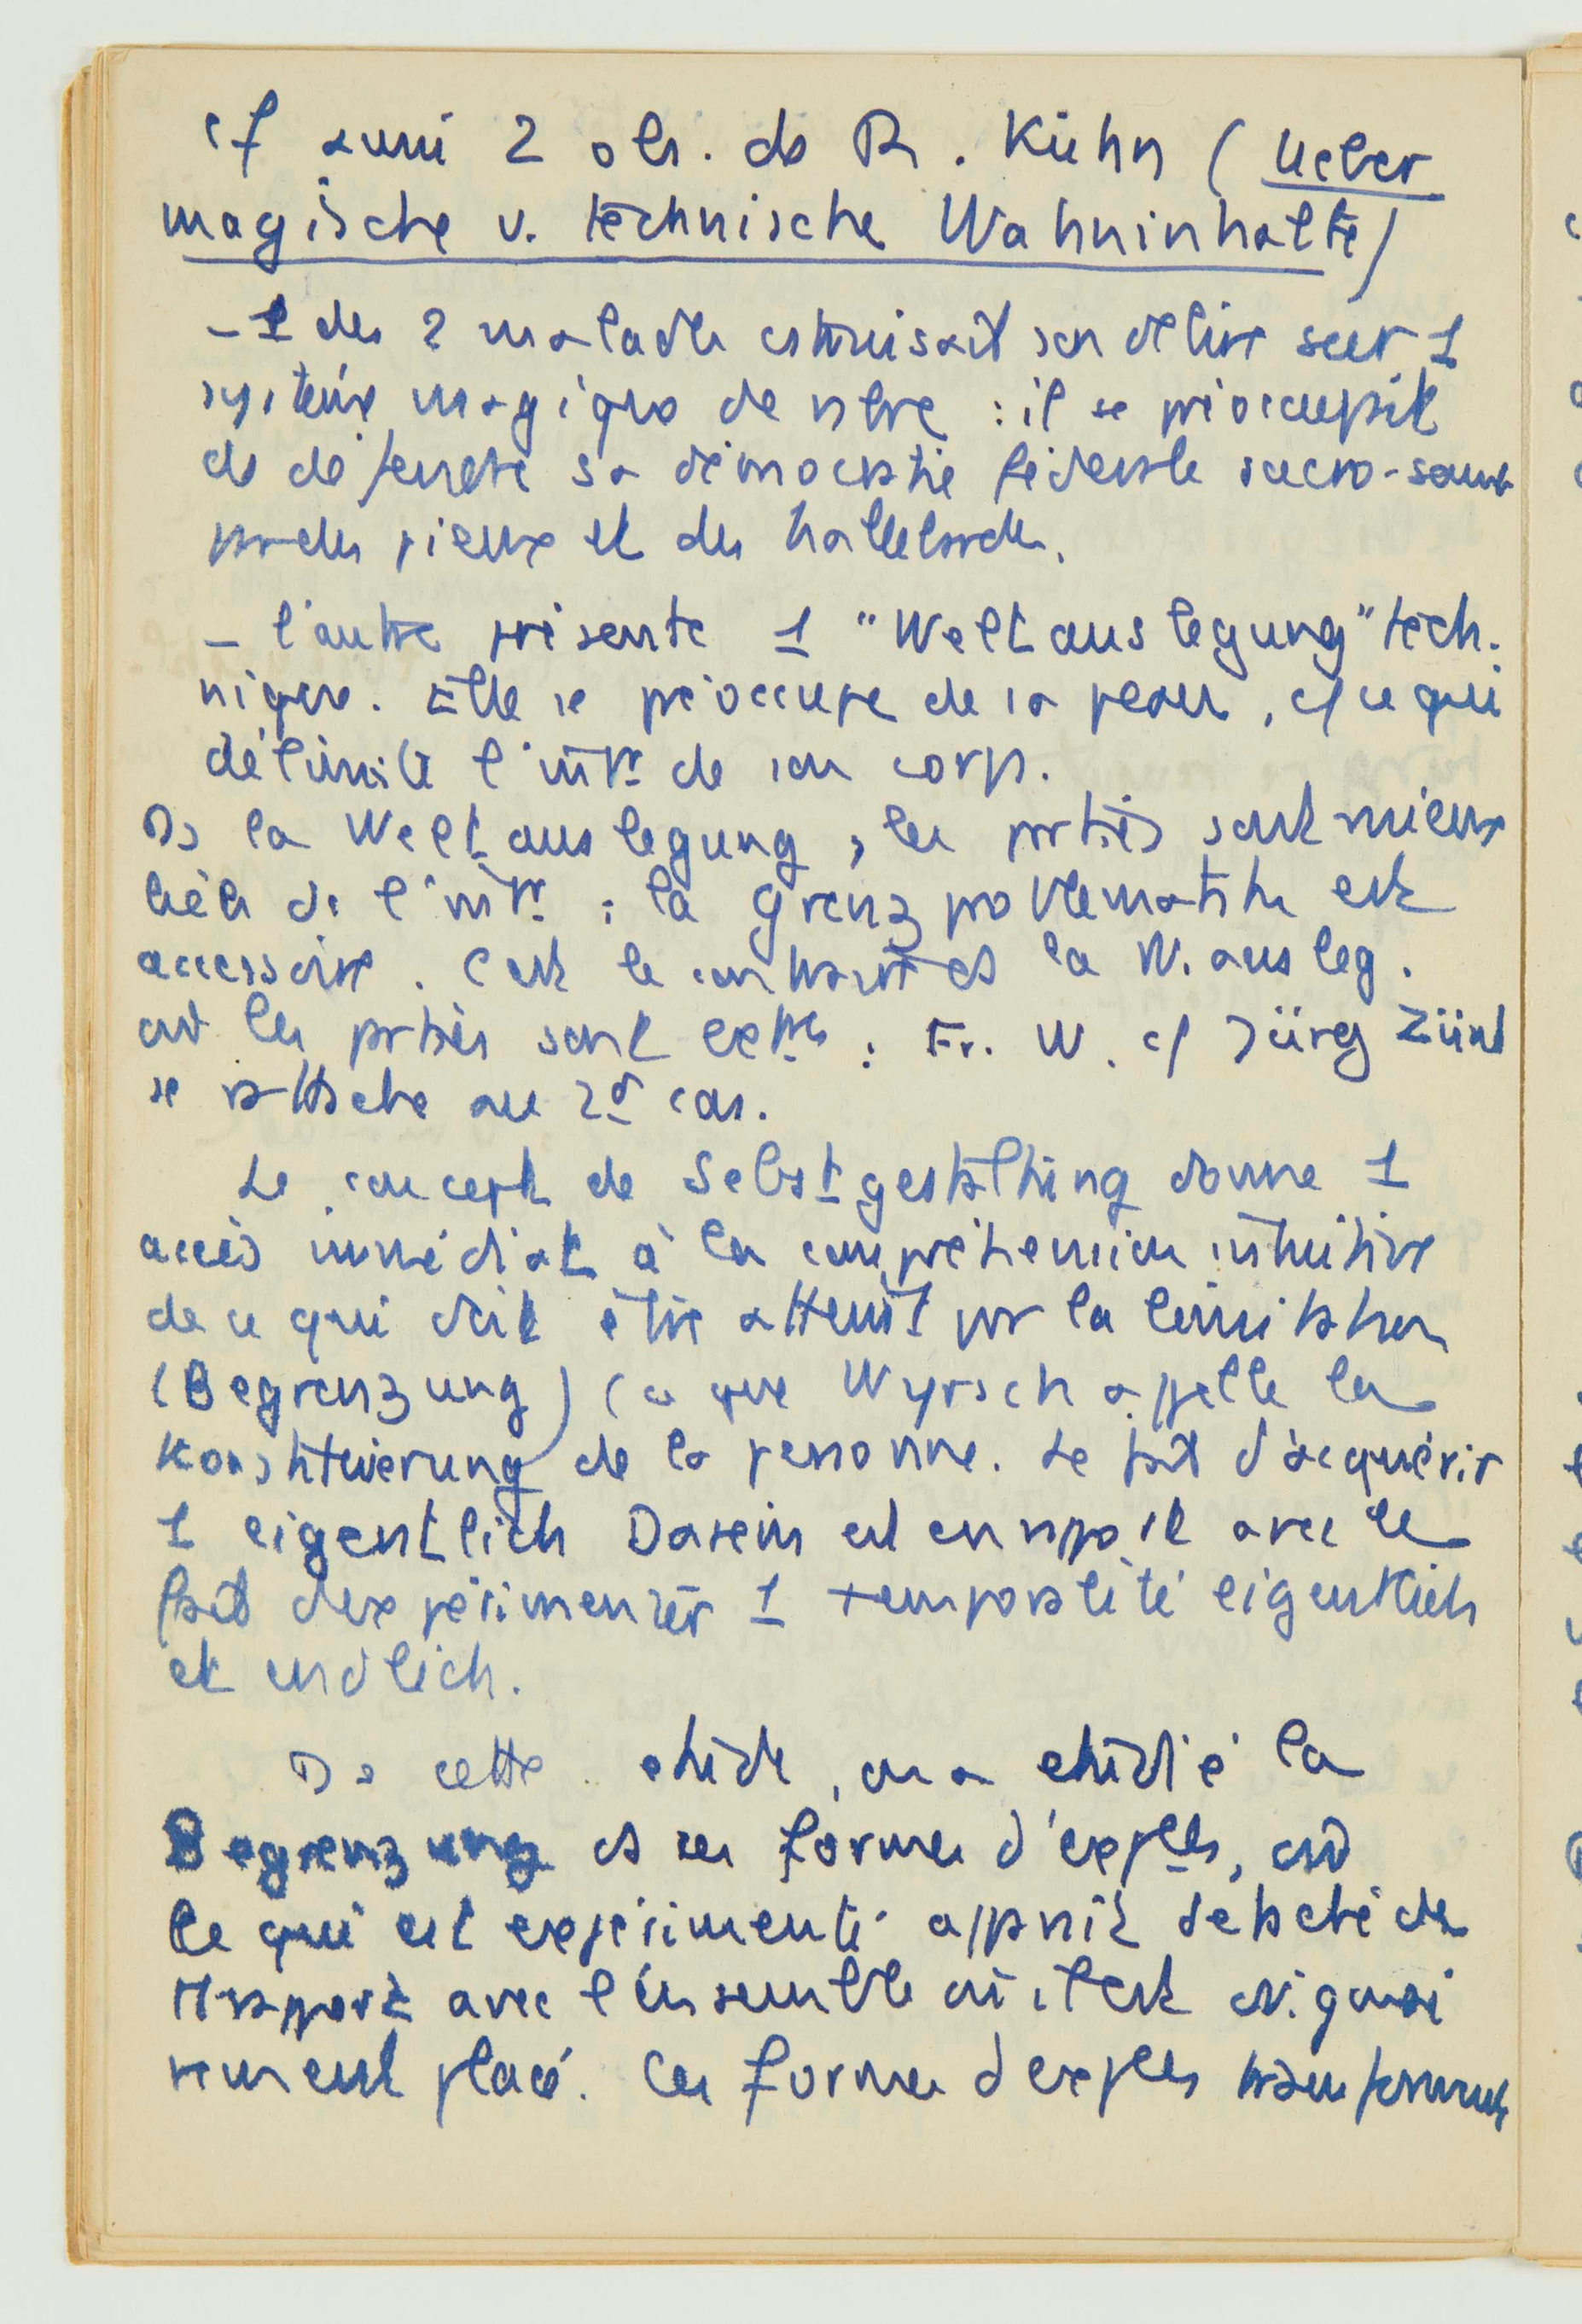 cf aussi 2 obs. de R. Kühn (Ueber
magische u. technische Wahninhalte)
- 1 des 2 malades construisait son délire sur 1
système magique de : il se préoccupait
de défendre sa démocratie fédérale sacro-sainte
par des pieux et des hallebardes.
- l'autre présente 1 "Weltauslegung" tech-
nique. Elle se préoccupe de sa peau, cf ce qui
délimite l'intr de son corps.
Ds la Weltauslegung, les parties sont mieux
liées de l'intr : la Grenzproblematik est
accessoire. C'est le contraire ds la W. ausleg.
où les parties sont extres : Fr. W. cf Jürg Zünd
se rattache au 2d cas.
Le concept de Selbstgestaltung donne 1
accès immédiat à la compréhension intuitive
de ce qui doit être atteint par la limitation
(Begrenzung) (ce que Wyrsch appelle la
Konstituierung de la personne. Le fait d'acquérir
1 eigentlich Dasein est en rapport avec le
fait d'expérimenter 1 temporalité eigentlich
et endlich.
Ds cette étude, on a étudié la
Begrenzung ds ses formes d'exples, où
ce qui est expérimenté apparaît détaché de
rapport avec l'ensemble où il est originai
rement placé. Ces formes d'exples transforment